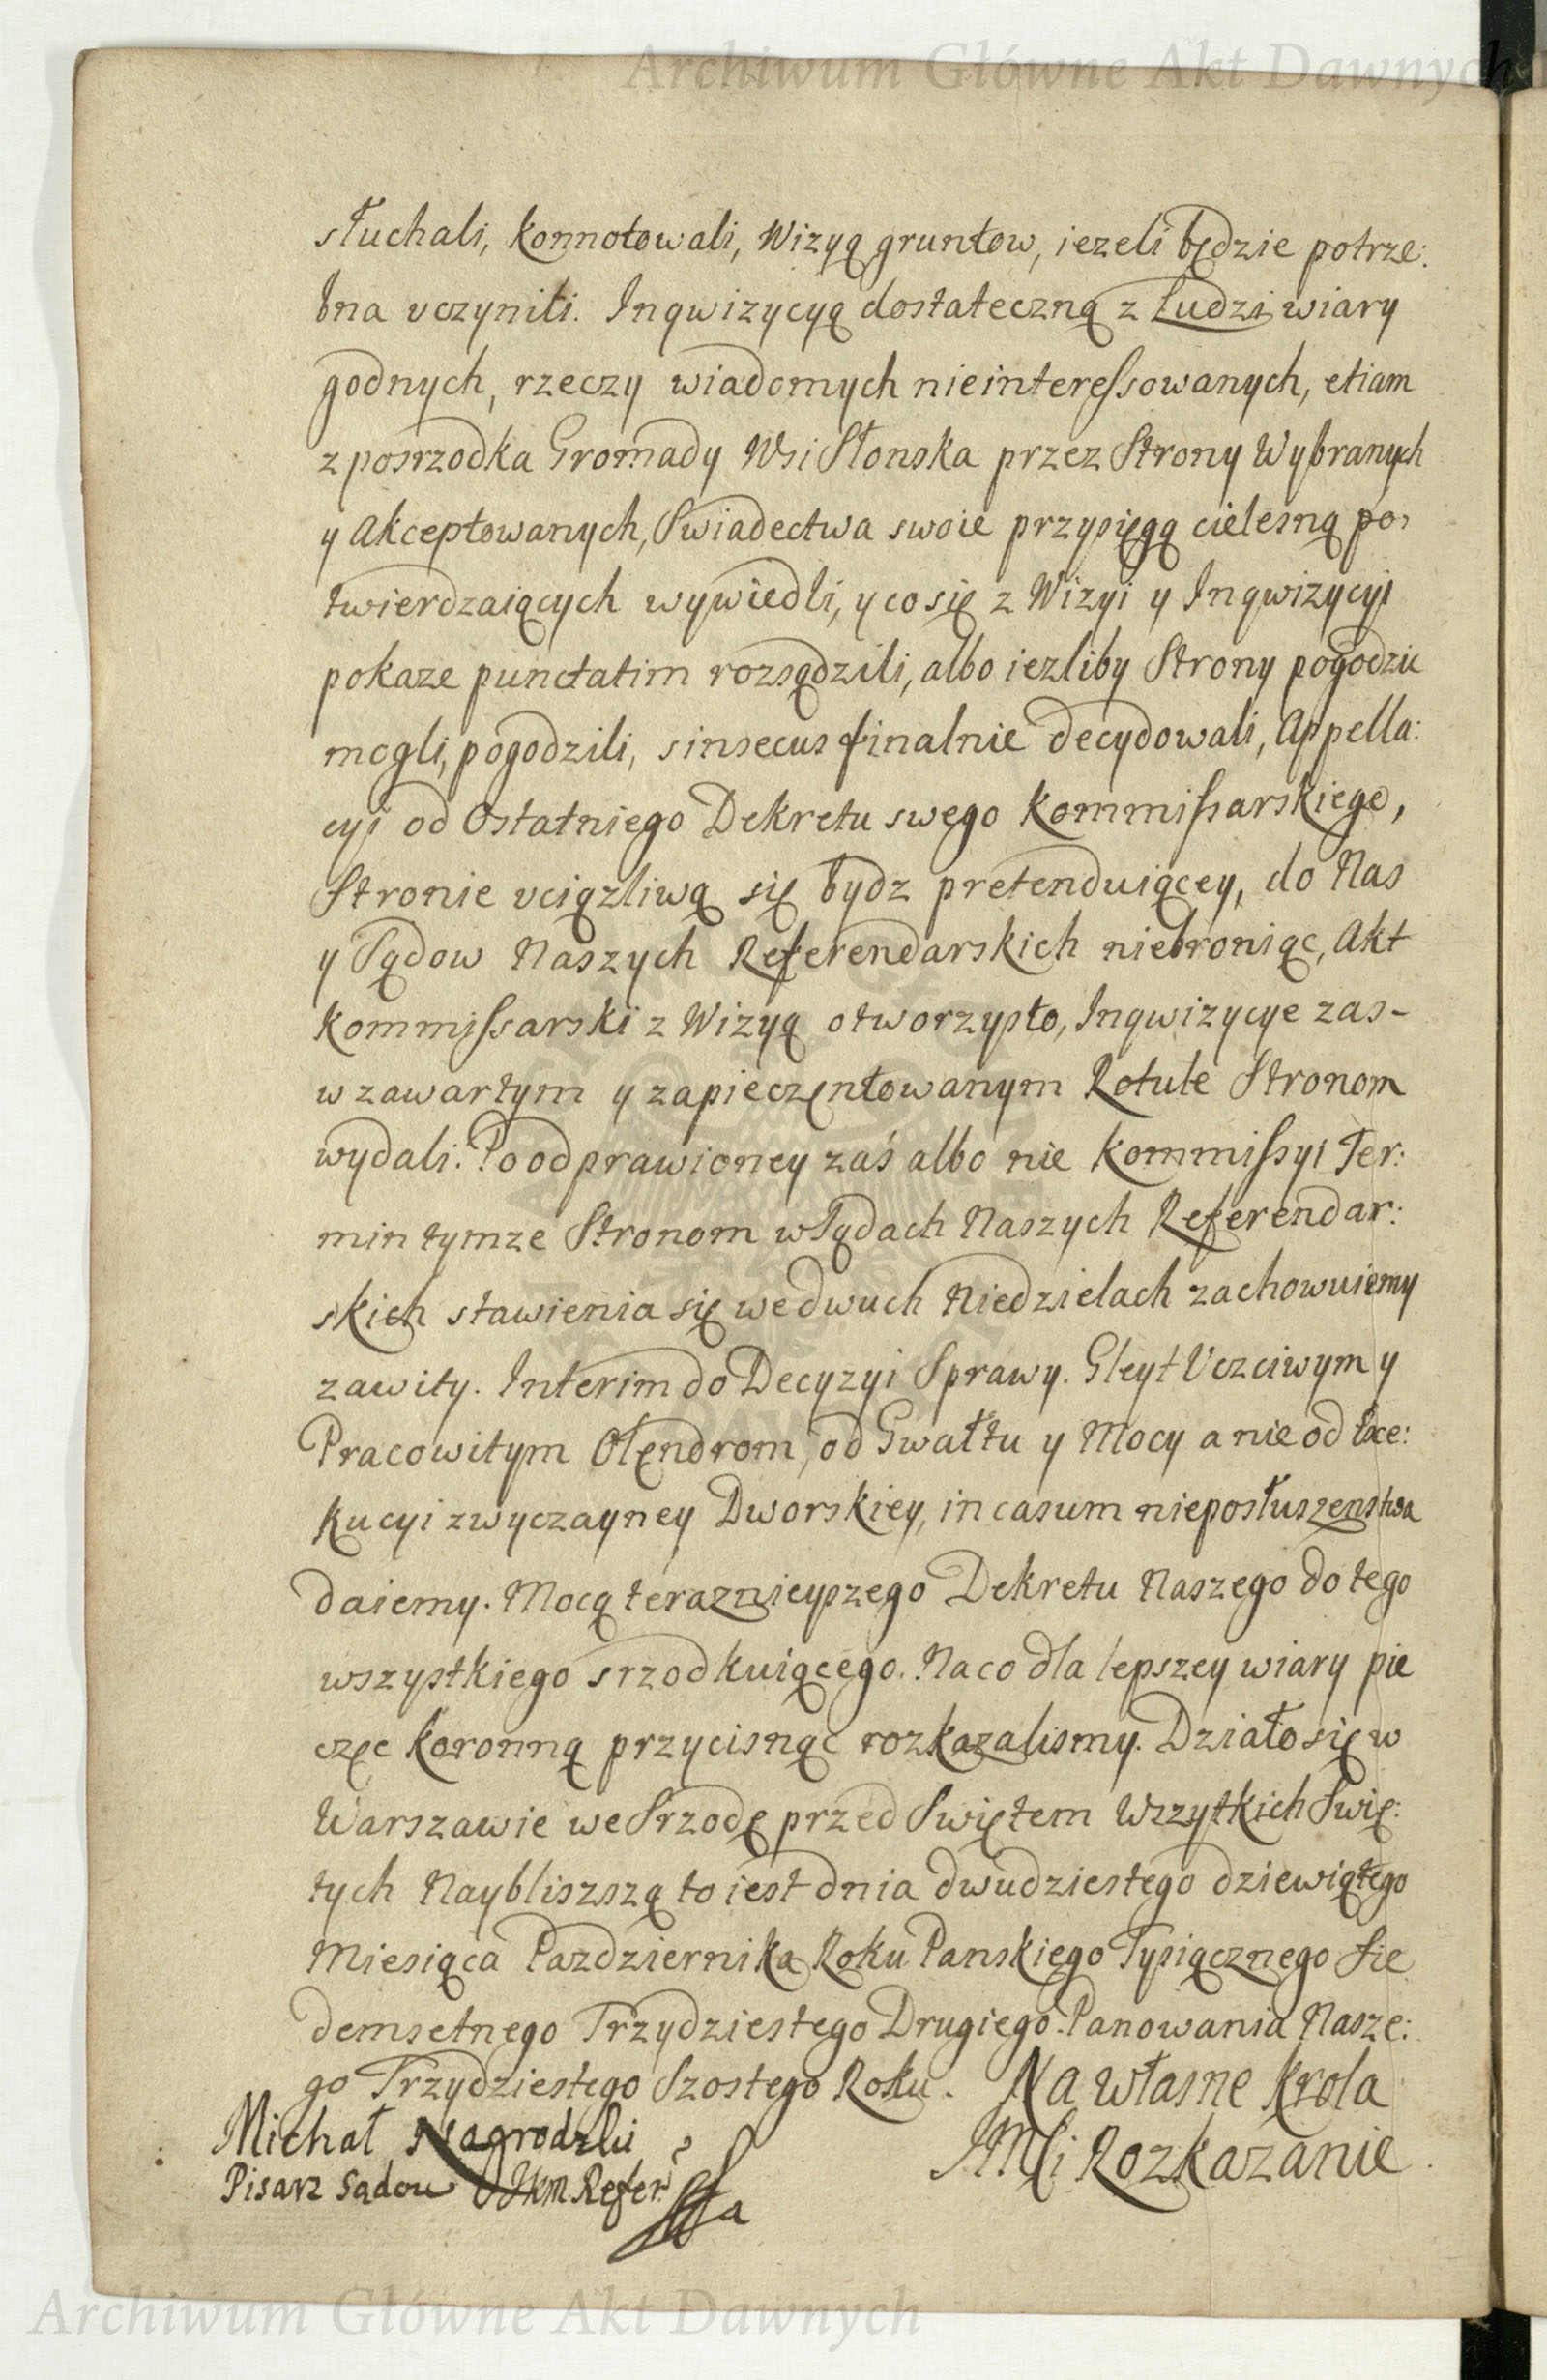 Archiwum Główne Akt Dawnych
słuchali, konnotowali, Wizyą gruntow, iezeli będzie potrze:
bna uczynili. Inqwizycyą dostateczną z Ludzi wiary
godnych, rzeczy wiadomych nieinteressowanych, etiam
z posrzodka Gromady Wsi Słonska przez Strony Wybranych
y Akceptowanych, Swiadectwa swoie przysięgą cielesną po-
twierdzaiących wywiedli, y co się z Wizyi y Inqwizycyi
pokaze punctatim rozsądzili, albo iezliby Strony pogodzic
mogli, pogodzili, sinsecus finalnie decydowali, Appella:
cyi od Ostatniego Dekretu swego Kommissarskiego,
Stronie uciązliwą się bydz pretenduiącey, do Nas
y Sądow Naszych Referendarskich niebroniąc, Akt
Kommissarski z Wizyą otworzysto, Inqwizycye zas-
w zawartym y zapieczętowanym Rotule Stronom
wydali. Po odprawioney zaś albo nie Kommissyi Ter:
min tymze Stronom w Sądach Naszych Referendar:
skich stawienia się we dwuch Niedzielach zachowuiemy
zawity. Interim do Decyzyi Sprawy. Gleyt Uczciwym y
Pracowitym Olęndrom, od Gwałtu y Mocy a nie od Exe:
kucyi zwyczayney Dworskiey, in casum nieposłuszenstwa
daiemy. Mocą teraznieyszego Dekretu Naszego do tego
wszystkiego srzodkuiącego. Na co dla lepszey wiary pie
częc Koronną przycisnąc rozkazalismy. Działo się w
Warszawie we Srzodę przed Swiętem Wszytkich Swię:
tych Naybliszszą to iest dnia dwudziestego dziewiątego
Miesiąca Pazdziernika Roku Panskiego Tysiącznego Sie
demsetnego Trzydziestego Drugiego. Panowania Nasze:
go Trzydziestego Szostego Roku. Na własne Krola
JMści Rozkazanie.
Michał Nagrodzki
Pisarz Sądow JKM Refer.
Archiwum Główne Akt Dawnych